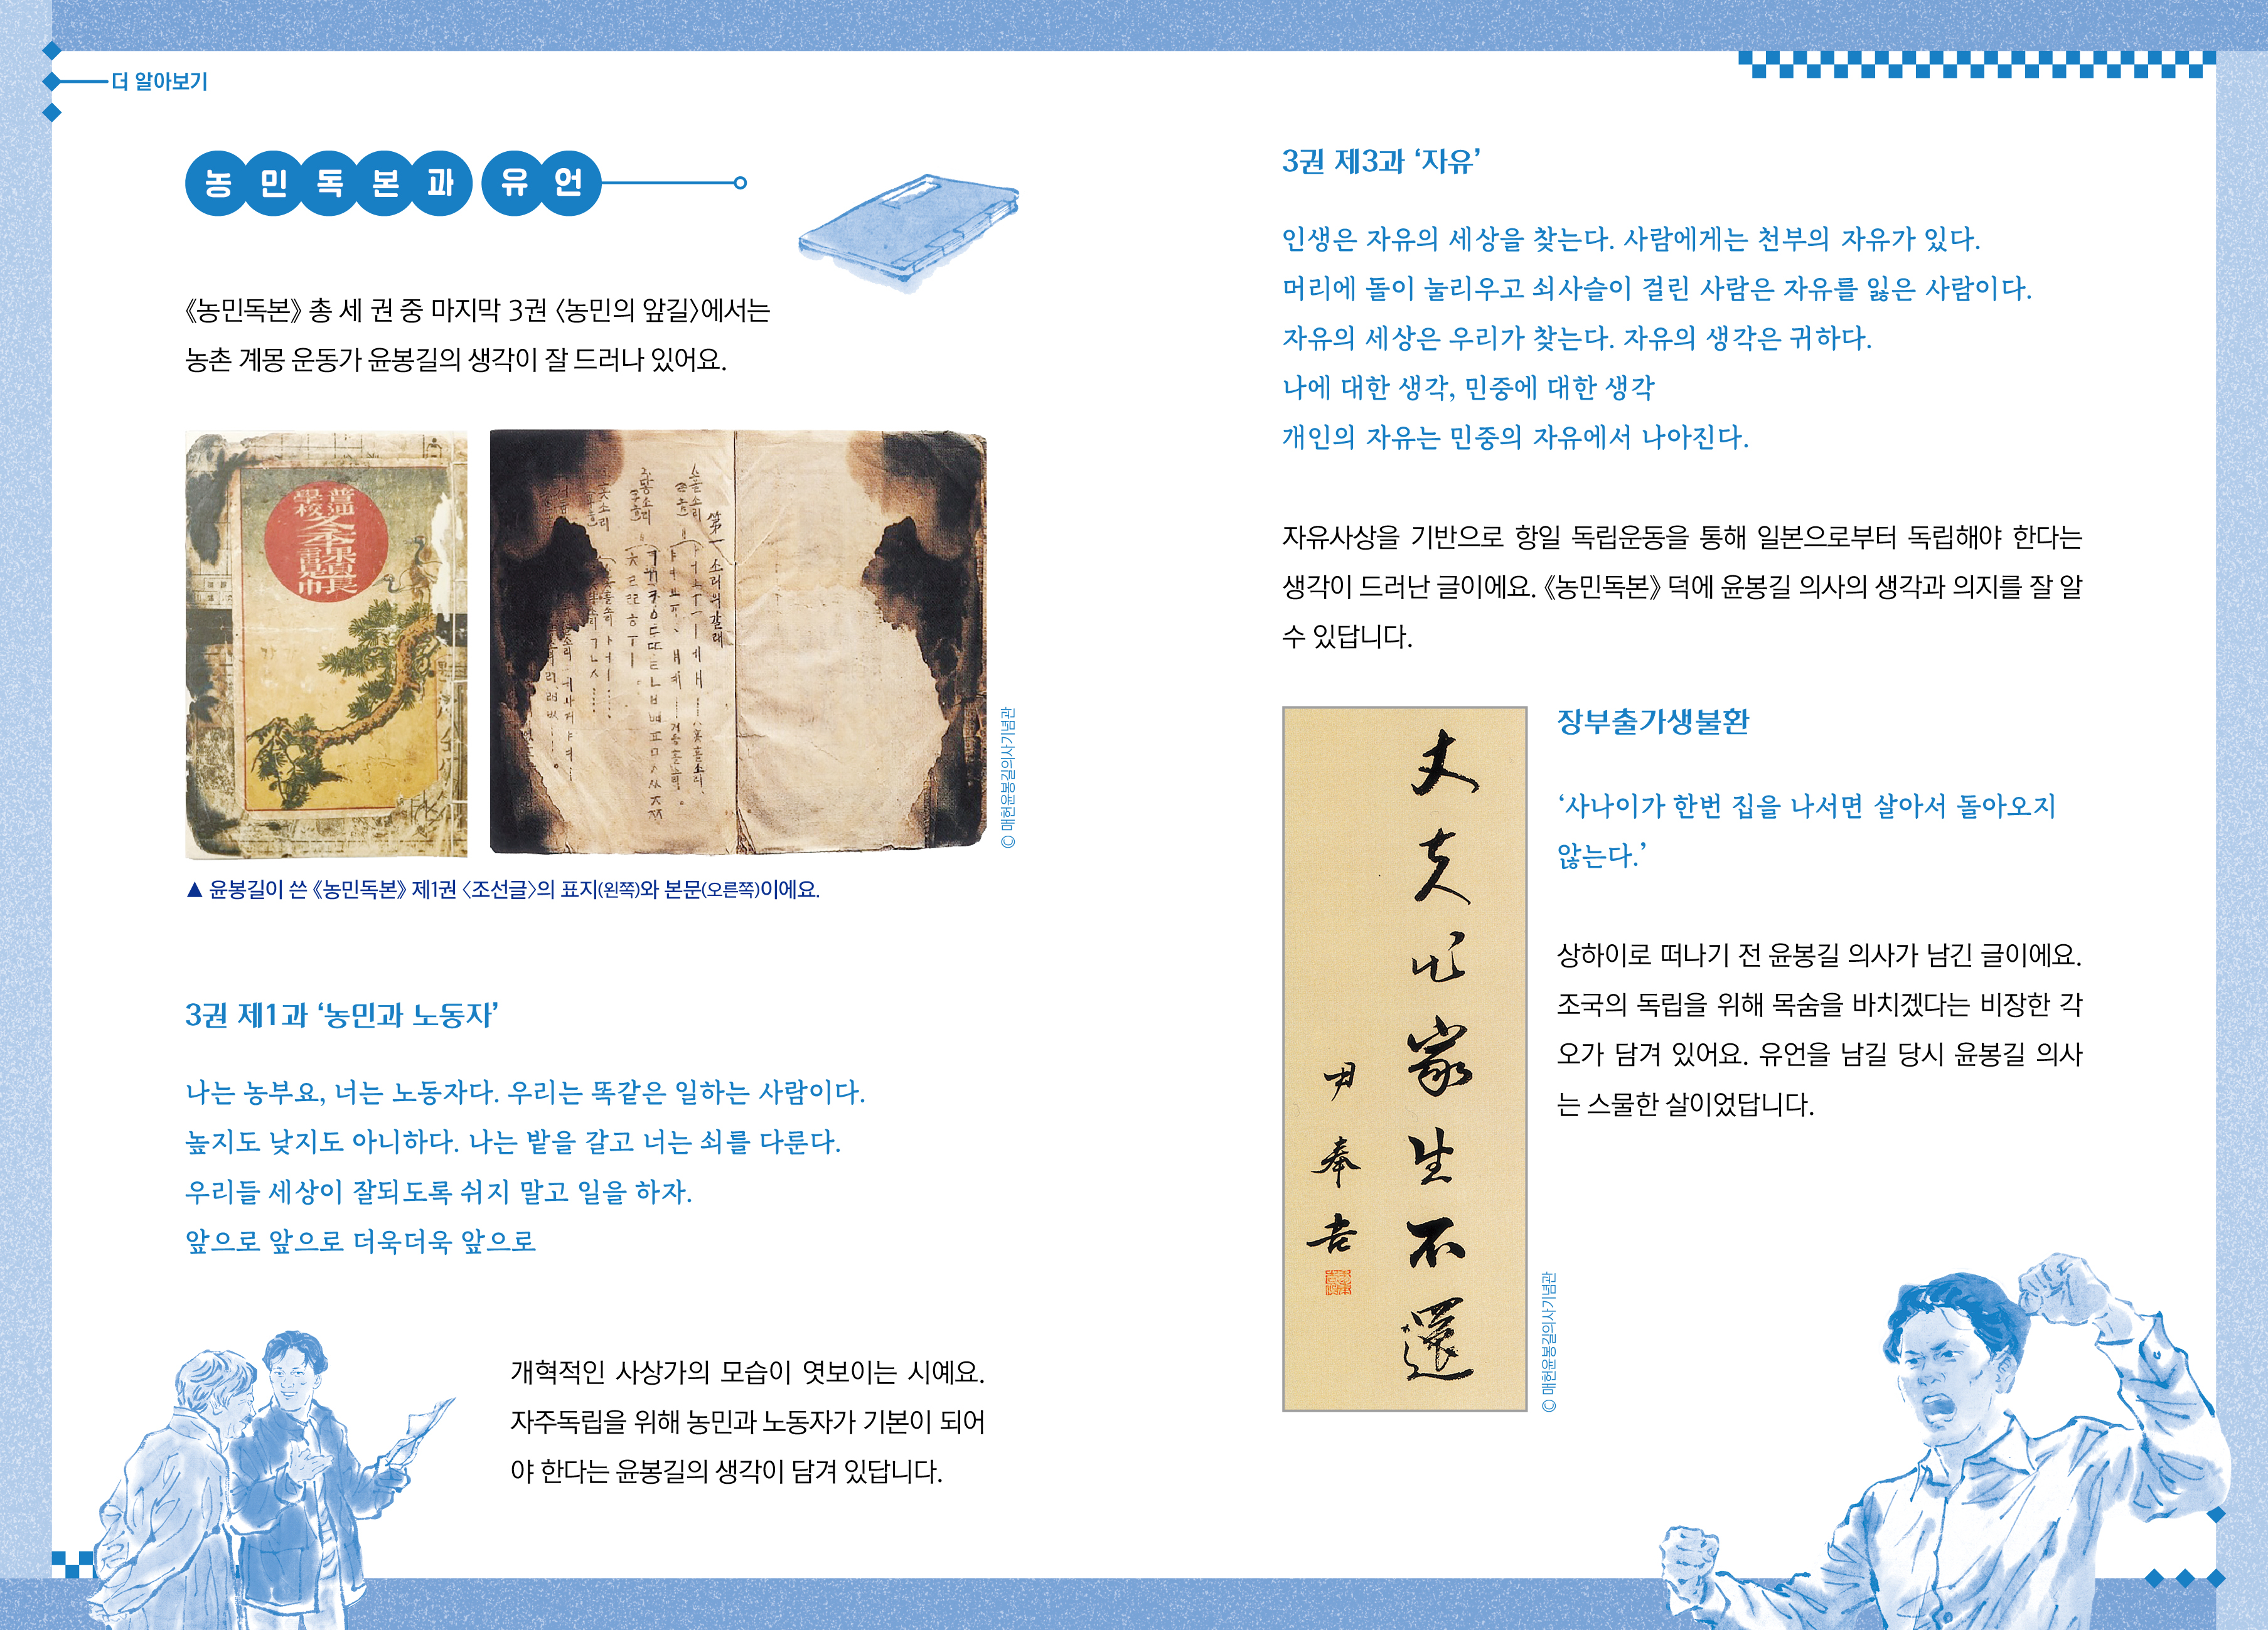 더 알아보기
농민독본과 유언
《농민독본》 총 세 권 중 마지막 3권 〈농민의 앞길〉에서는
농촌 계몽 운동가 윤봉길의 생각이 잘 드러나 있어요.
普通
學校
第一 소리의갈래
ⓒ 매헌윤봉길의사기념관
▲ 윤봉길이 쓴 《농민독본》 제1권 〈조선글〉의 표지(왼쪽)와 본문(오른쪽)이에요.
3권 제1과 ‘농민과 노동자’
나는 농부요, 너는 노동자다. 우리는 똑같은 일하는 사람이다.
높지도 낮지도 아니하다. 나는 밭을 갈고 너는 쇠를 다룬다.
우리들 세상이 잘되도록 쉬지 말고 일을 하자.
앞으로 앞으로 더욱더욱 앞으로
개혁적인 사상가의 모습이 엿보이는 시예요.
자주독립을 위해 농민과 노동자가 기본이 되어
야 한다는 윤봉길의 생각이 담겨 있답니다.
3권 제3과 ‘자유’
인생은 자유의 세상을 찾는다. 사람에게는 천부의 자유가 있다.
머리에 돌이 눌리우고 쇠사슬이 걸린 사람은 자유를 잃은 사람이다.
자유의 세상은 우리가 찾는다. 자유의 생각은 귀하다.
나에 대한 생각, 민중에 대한 생각
개인의 자유는 민중의 자유에서 나아진다.
자유사상을 기반으로 항일 독립운동을 통해 일본으로부터 독립해야 한다는
생각이 드러난 글이에요. 《농민독본》 덕에 윤봉길 의사의 생각과 의지를 잘 알
수 있답니다.
丈夫出家生不還
尹奉吉
ⓒ 매헌윤봉길의사기념관
장부출가생불환
‘사나이가 한번 집을 나서면 살아서 돌아오지
않는다.’
상하이로 떠나기 전 윤봉길 의사가 남긴 글이에요.
조국의 독립을 위해 목숨을 바치겠다는 비장한 각
오가 담겨 있어요. 유언을 남길 당시 윤봉길 의사
는 스물한 살이었답니다.